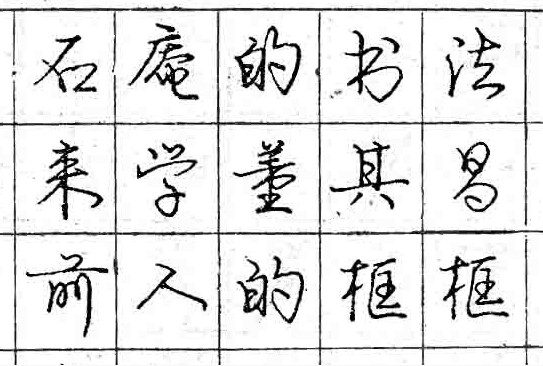 石庵的书法
来学董其昌
前人的框框